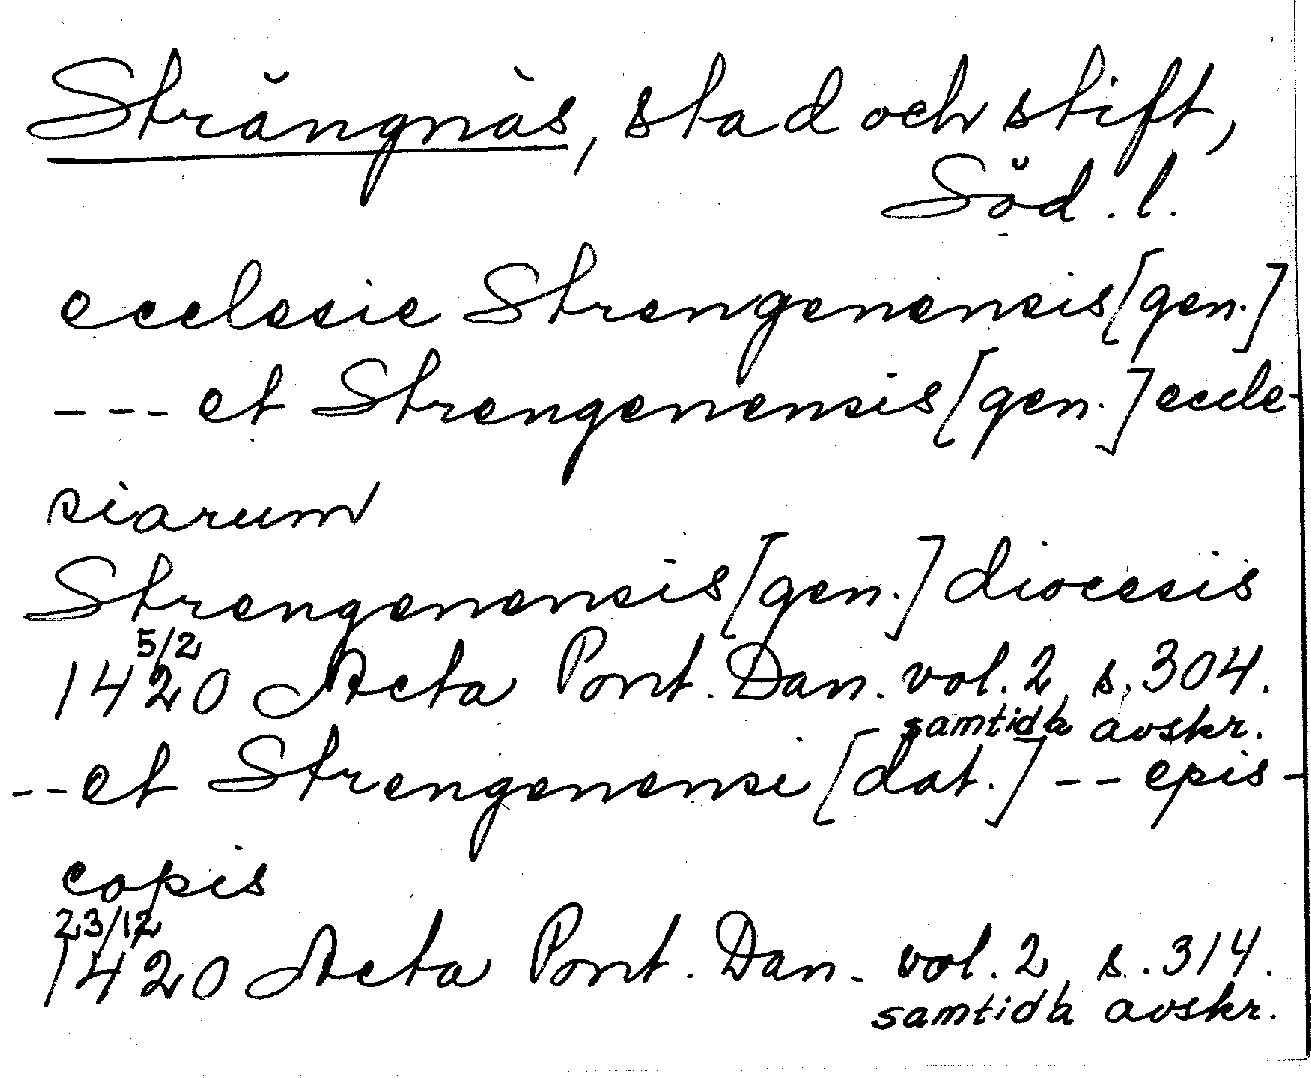 Strängnäs, stad och stift,
Söd. l.
ecclesie Strengenensis [gen.]
--- et Strengenensis [gen.] eccle-
siarum
Strengenensis [gen.] diocesis
5/2
1420 Acta Pont. Dan. vol. 2, s. 304.
samtida avskr.
-- et Strengenensi [dat.] -- epis-
copis
23/12
1420 Acta Pont. Dan. vol. 2, s. 314.
samtida avskr.